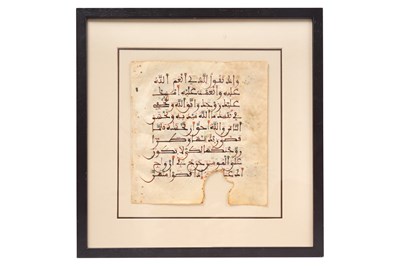 واذ تقول للذي انعم الله
عليه وانعمت عليه امسك
عليك زوجك واتق الله وتخفي
في نفسك ما الله مبديه وتخشى
الناس والله احق ان تخشىه فلما
قضى زيد منها وطرا
زوجنكها لكي لا يكون
على المومنين حرج في ازوج
اذا قضوا منهن